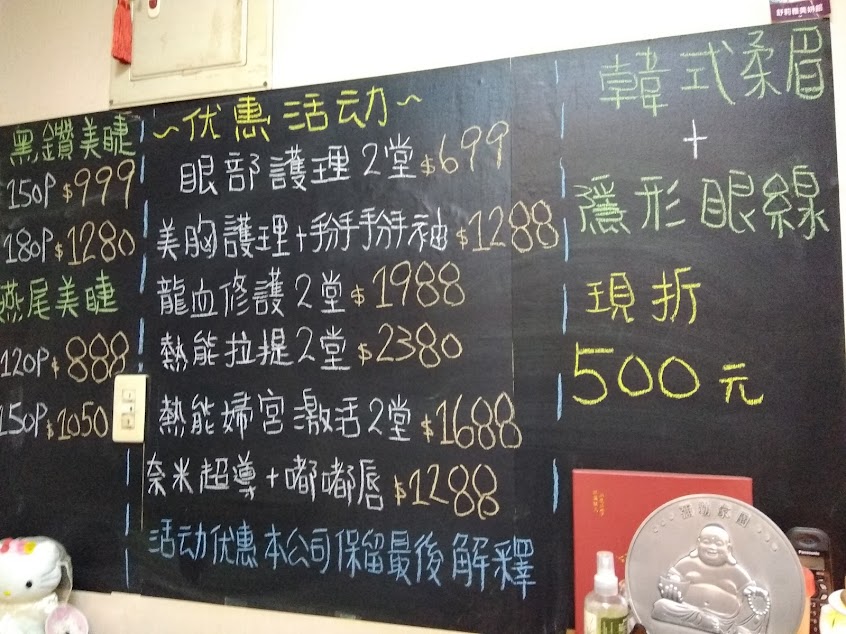 舒莉雅美妍館
黑鑽美睫
150P $999
180P $1280
燕尾美睫
120P $888
150P $1050
~优惠活动~
眼部護理2堂 $699
美胸護理+掰掰袖 $1288
龍血修護2堂 $1988
熱能拉提2堂 $2380
熱能婦宮激活2堂 $1688
奈米超導+嘟嘟唇 $1288
活动优惠本公司保留最後解釋
韓式柔眉
+
隱形眼線
現折
500元
Panasonic